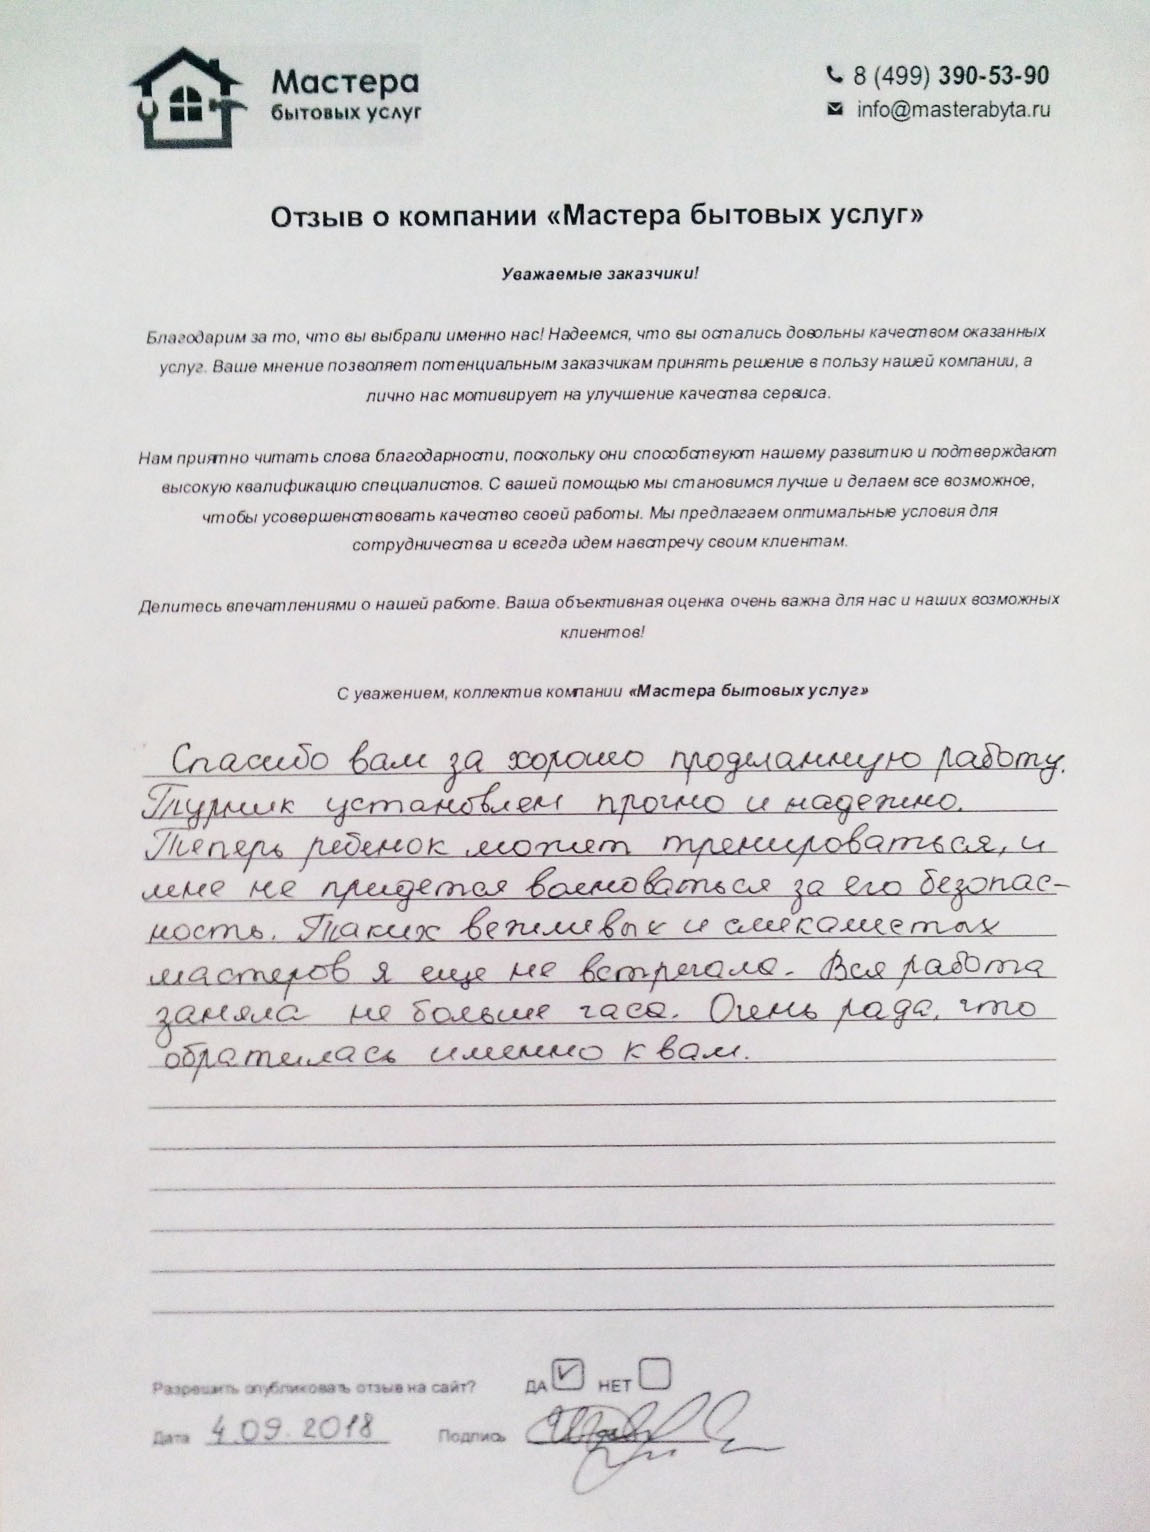 Мастера
бытовых услуг
8 (499) 390-53-90
info@masterabyta.ru
Отзыв о компании «Мастера бытовых услуг»
Уважаемые заказчики!
Благодарим за то, что вы выбрали именно нас! Надеемся, что вы остались довольны качеством оказанных
услуг. Ваше мнение позволяет потенциальным заказчикам принять решение в пользу нашей компании, а
лично нас мотивирует на улучшение качества сервиса.
Нам приятно читать слова благодарности, поскольку они способствуют нашему развитию и подтверждают
высокую квалификацию специалистов. С вашей помощью мы становимся лучше и делаем все возможное,
чтобы усовершенствовать качество своей работы. Мы предлагаем оптимальные условия для
сотрудничества и всегда идем навстречу своим клиентам.
Делитесь впечатлениями о нашей работе. Ваша объективная оценка очень важна для нас и наших возможных
клиентов!
С уважением, коллектив компании «Мастера бытовых услуг»
Спасибо вам за хорошо проделанную работу.
Турник установлен прочно и надежно.
Теперь ребенок может тренироваться, и
мне не придется волноваться за его безопас-
ность. Таких вежливых и смекалистых
мастеров я еще не встречала. Вся работа
заняла не больше часа. Очень рада, что
обратилась именно к вам.
Разрешить опубликовать отзыв на сайт? ДА НЕТ
Дата 4.09.2018 Подпись